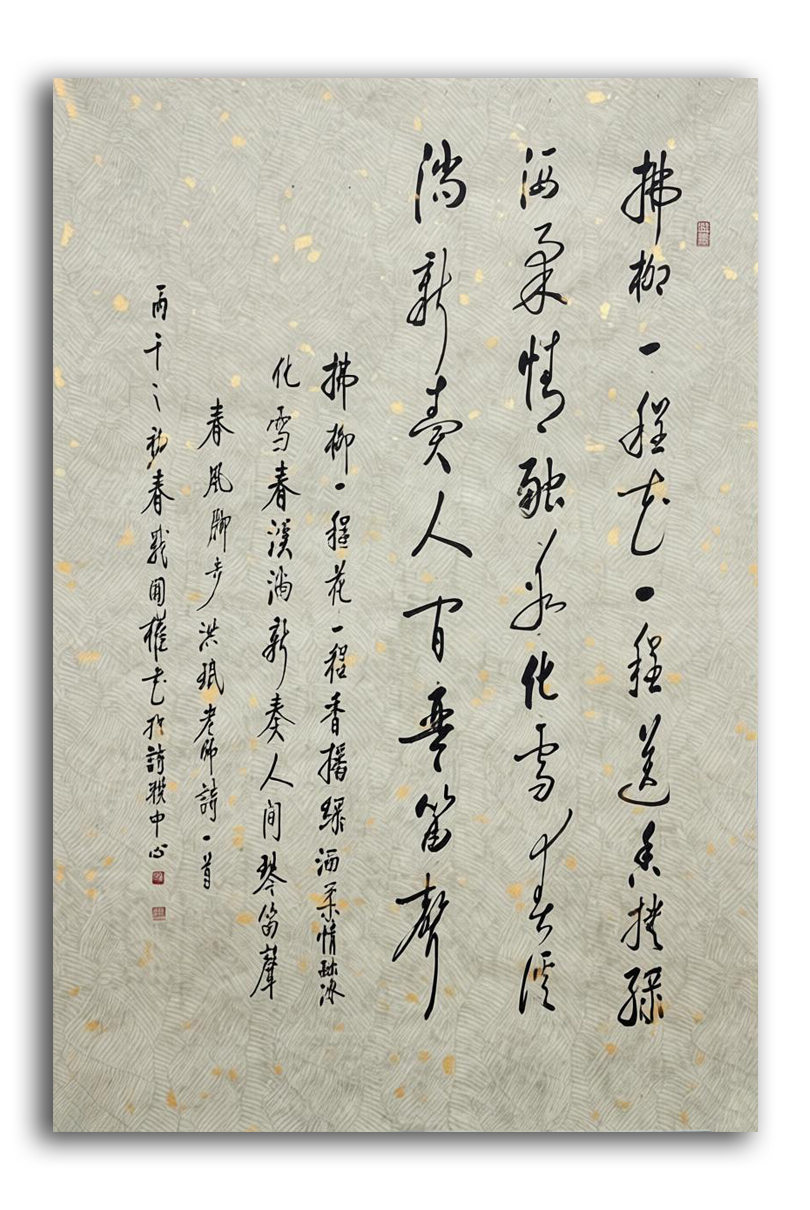 拂柳一程花一程送香播綠
洒柔情融冰化雪春溪
淌新奏人间琴笛聲
拂柳一程花一程香播綠洒柔情融冰
化雪春溪淌新奏人间琴笛聲
春風腳步洪珉老師詩一首
丙午之初春國權書於詩联中心